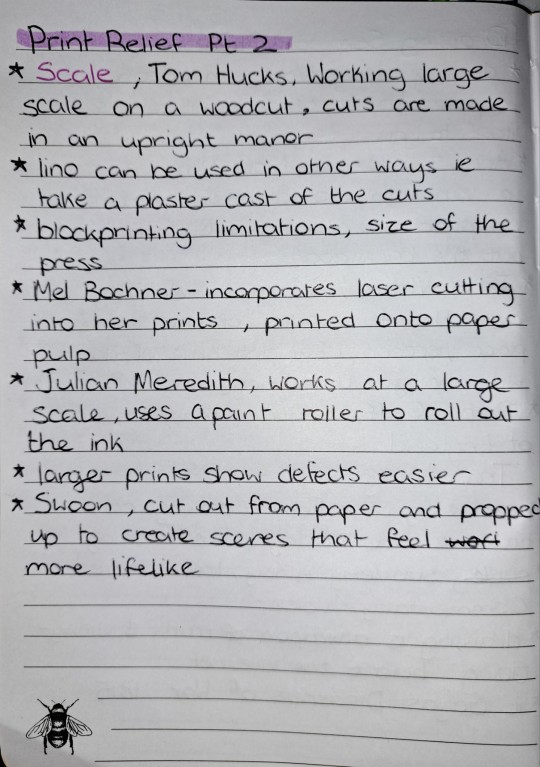 Print Relief Pt 2
* Scale, Tom Hucks, Working large
scale on a woodcut, cuts are made
in an upright manor
* lino can be used in other ways ie
take a plaster cast of the cuts
* blockprinting limitations, size of the
press
* Mel Bochner - incorporates laser cutting
into her prints, printed onto paper
pulp
* Julian Meredith, works at a large
scale, uses a paint roller to roll out
the ink
* larger prints show defects easier
* Swoon, cut out from paper and propped
up to create scenes that feel
more lifelike